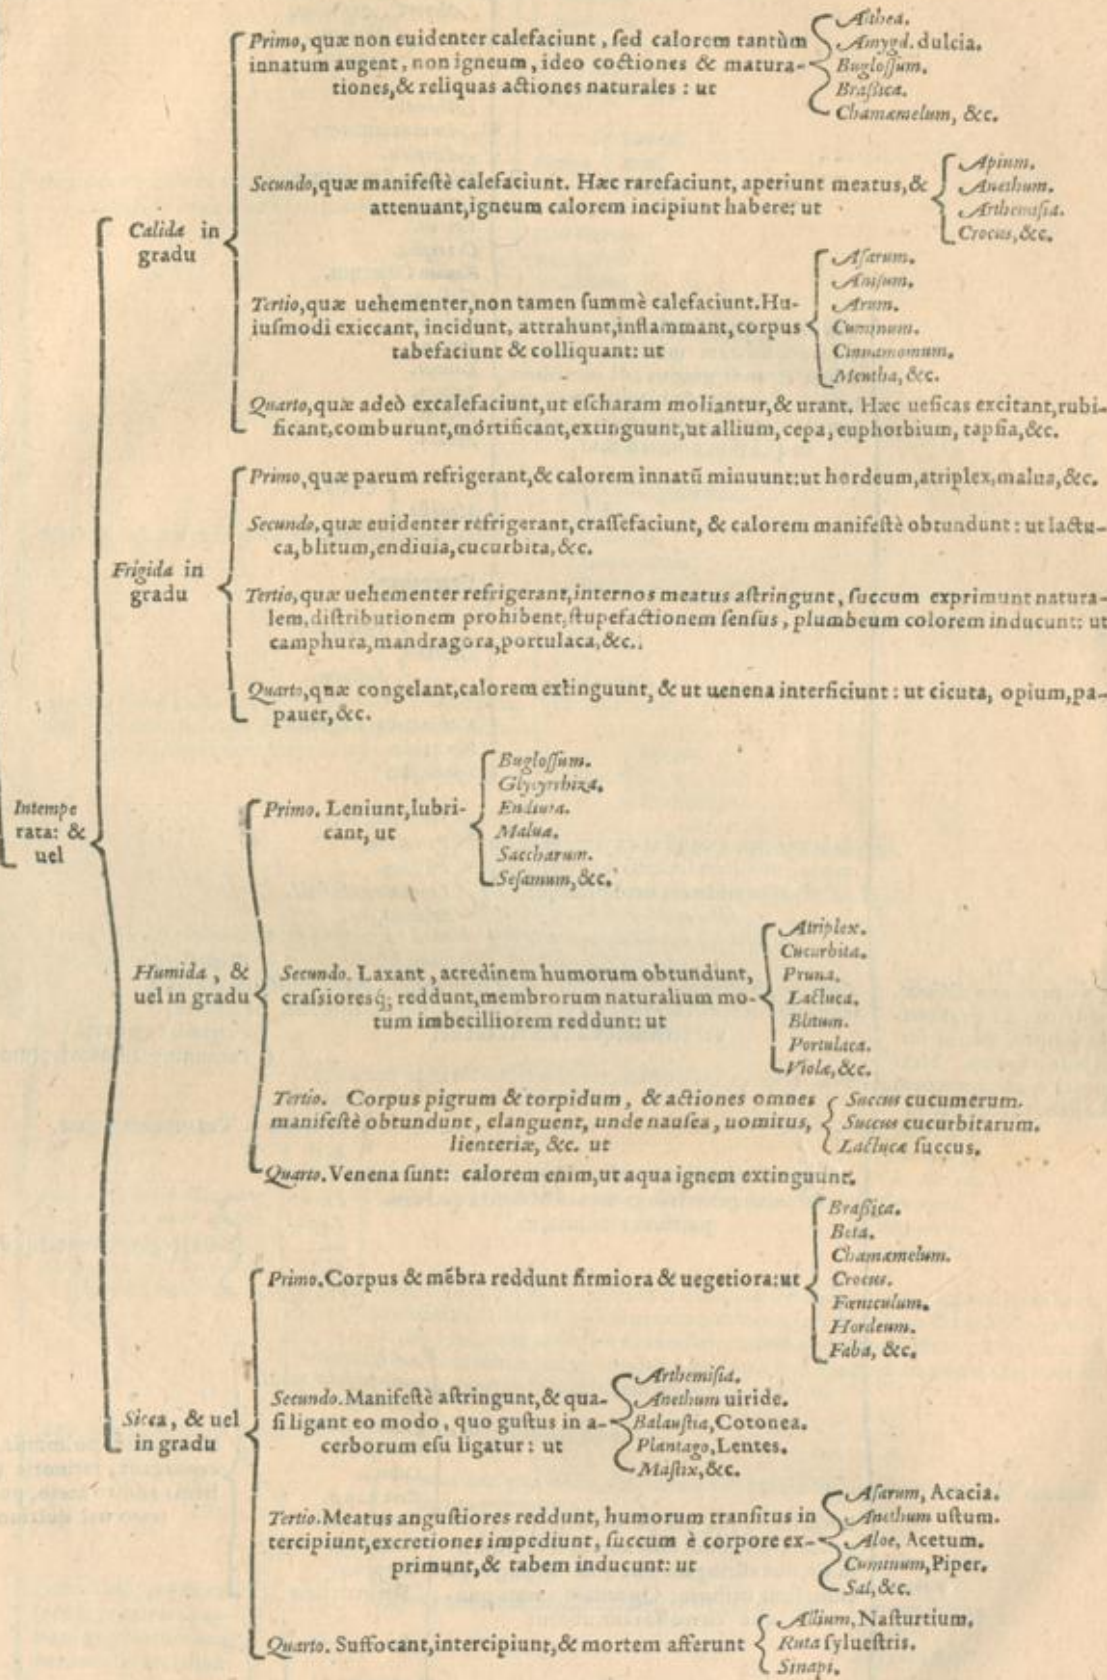 Intempe
rata: &
uel
Calida in
gradu
Primo, quæ non euidenter calefaciunt, ſed calorem tantùm
innatum augent, non igneum, ideo coctiones & matura-
tiones, & reliquas actiones naturales : ut
Althea.
Amygd. dulcia.
Bugloſſum.
Braſsica.
Chamæmelum, &c.
Secundo, quæ manifeſtè calefaciunt. Hæc rarefaciunt, aperiunt meatus, &
attenuant, igneum calorem incipiunt habere: ut
Apium.
Anethum.
Arthemiſia.
Crocus, &c.
Tertio, quæ uehementer, non tamen ſummè calefaciunt. Hu-
iuſmodi exiccant, incidunt, attrahunt, inflammant, corpus
tabefaciunt & colliquant: ut
Aſarum.
Aniſum.
Arum.
Cuminum.
Cinnamomum.
Mentha, &c.
Quarto, quæ adeò excalefaciunt, ut eſcharam moliantur, & urant. Hæc ueſicas excitant, rubi-
ficant, comburunt, mórtificant, extinguunt, ut allium, cepa, euphorbium, tapſia, &c.
Frigida in
gradu
Primo, quæ parum refrigerant, & calorem innatū minuunt: ut hordeum, atriplex, malua, &c.
Secundo, quæ euidenter refrigerant, craſſefaciunt, & calorem manifeſtè obtundunt : ut lactu-
ca, blitum, endiuia, cucurbita, &c.
Tertio, quæ uehementer refrigerant, internos meatus aſtringunt, ſuccum exprimunt natura-
lem, diſtributionem prohibent, ſtupefactionem ſenſus, plumbeum colorem inducunt: ut
camphura, mandragora, portulaca, &c.
Quarto, quæ congelant, calorem extinguunt, & ut uenena interficiunt : ut cicuta, opium, pa-
pauer, &c.
Humida, &
uel in gradu
Primo. Leniunt, lubri-
cant, ut
Bugloſſum.
Glycyrrhiza.
Endiuia.
Malua.
Saccharum.
Seſamum, &c.
Secundo. Laxant, acredinem humorum obtundunt,
craſsioresq́; reddunt, membrorum naturalium mo-
tum imbecilliorem reddunt: ut
Atriplex.
Cucurbita.
Pruna.
Lactuca.
Blitum.
Portulaca.
Violæ, &c.
Tertio. Corpus pigrum & torpidum, & actiones omnes
manifeſtè obtundunt, elanguent, unde nauſea, uomitus,
lienteriæ, &c. ut
Succus cucumerum.
Succus cucurbitarum.
Lactucæ ſuccus.
Quarto. Venena ſunt: calorem enim, ut aqua ignem extinguunt.
Sicca, & uel
in gradu
Primo. Corpus & mēbra reddunt firmiora & uegetiora: ut
Braſsica.
Beta.
Chamæmelum.
Crocus.
Fœniculum.
Hordeum.
Faba, &c.
Secundo. Manifeſtè aſtringunt, & qua-
ſi ligant eo modo, quo guſtus in a-
cerborum eſu ligatur : ut
Arthemiſia.
Anethum uiride.
Balauſtia, Cotonea.
Plantago, Lentes.
Maſtix, &c.
Tertio. Meatus anguſtiores reddunt, humorum tranſitus in
tercipiunt, excretiones impediunt, ſuccum è corpore ex-
primunt, & tabem inducunt: ut
Aſarum, Acacia.
Anethum uſtum.
Aloe, Acetum.
Cuminum, Piper.
Sal, &c.
Quarto. Suffocant, intercipiunt, & mortem afferunt
Allium, Naſturtium.
Ruta ſylueſtris.
Sinapi.